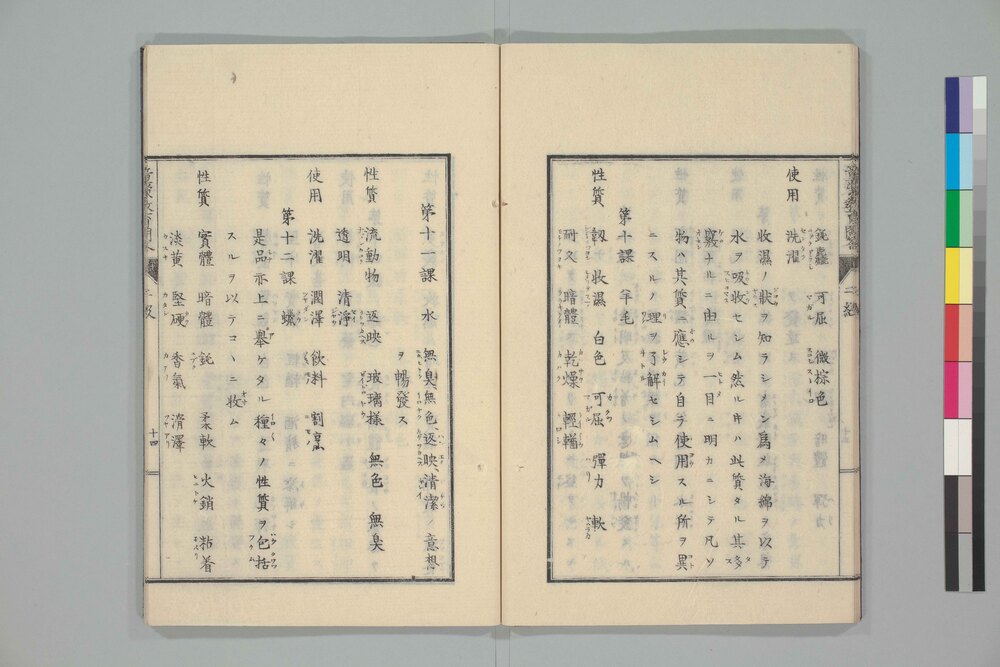 鈍麤 可屈 微棕色
使用 洗濯
收濕ノ狀ヲ知ラシメン爲メ海綿ヲ以テ
水ヲ吸收セシム然ルキハ此質タル其多
竅ナルニ由ルヲ一目ニ明カニシテ凡ソ
物ハ其質ニ應シテ自ラ使用スル所ヲ異
ニスルノ理ヲ了解セシムヘシ
第十課 羊毛
性質 韌 收濕 白色 可屈 彈力 軟
耐久 暗體 乾燥 輕
第十一課 水 無臭無色返映清潔ノ意想
ヲ暢發ス
性質 流動物 返映 玻璃樣 無色 無臭
透明 清淨
使用 洗濯 潤澤 飲料 割烹
第十二課 蠟
是品亦上ニ舉ケタル種々ノ性質ヲ包括
スルヲ以テコヽニ收ム
性質 實體 暗體 鈍 柔軟 火銷 粘着
淡黄 堅硬 香氣 滑澤
十四